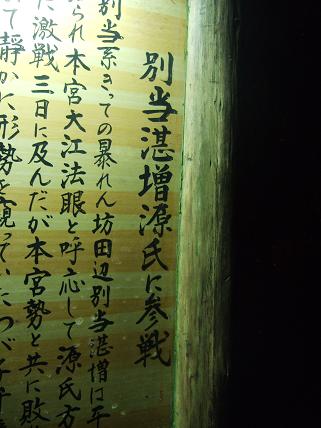 別当湛増源氏に参戦
別当系きっての暴れん坊田辺別当湛増は平
られ本宮大江法眼と呼応して源氏方
た激戦三日に及んだが本宮勢と共に敗
て静かに形勢を窺っていたつぶ